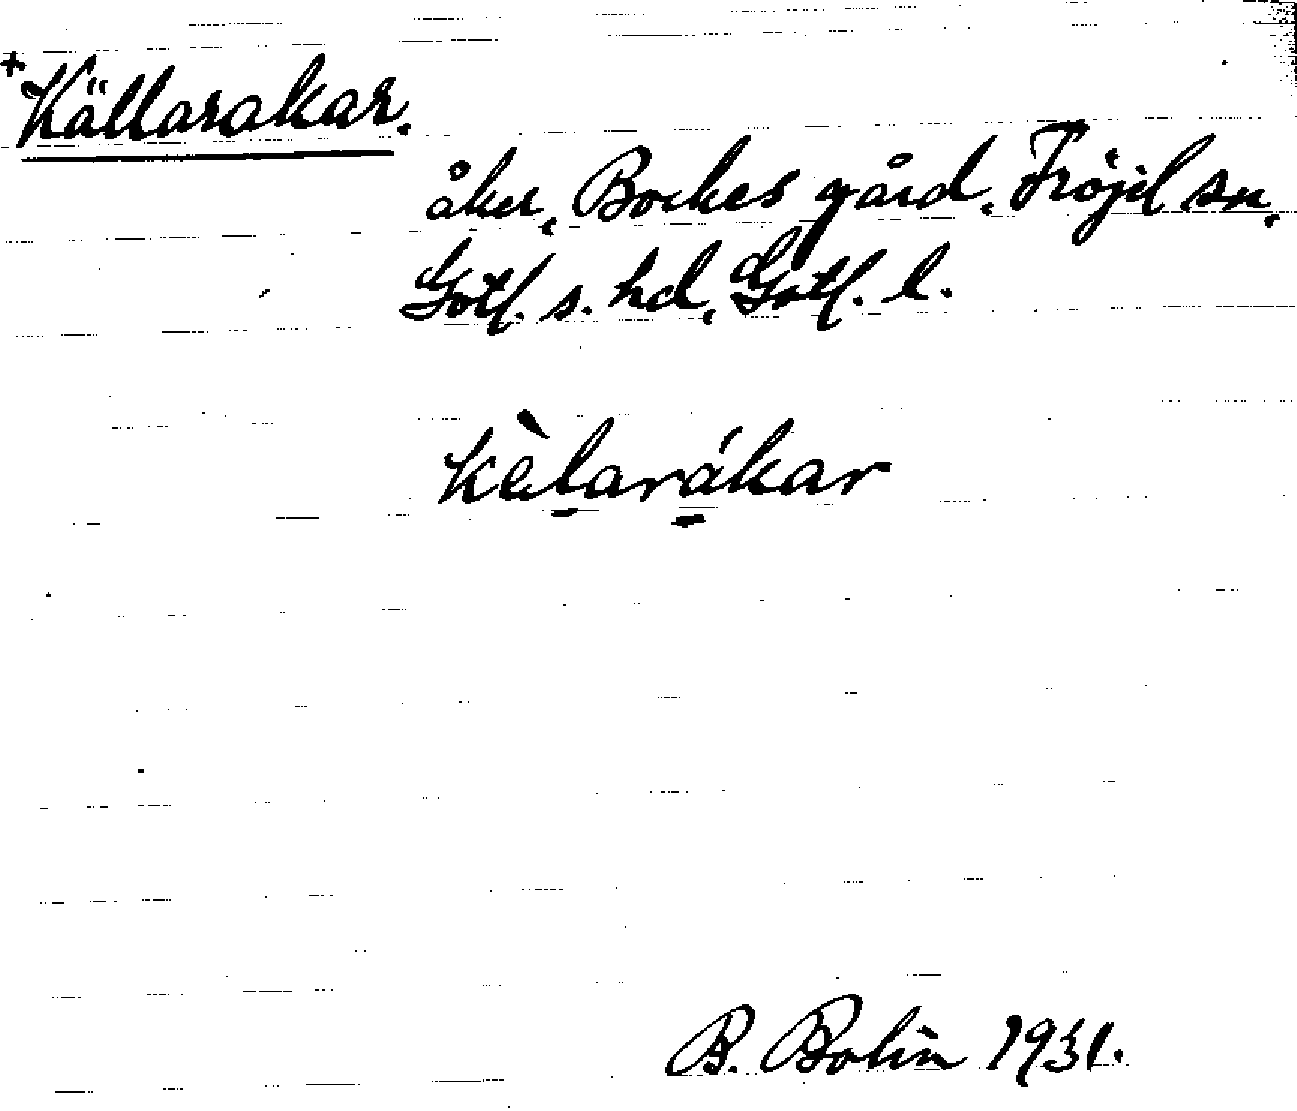 +Källarakar.
åker, Bockes gård, Fröjel sn,
Gotl. s. hd, Gotl. l.
kèl̠ará̠kar
B. Bolin 1931.